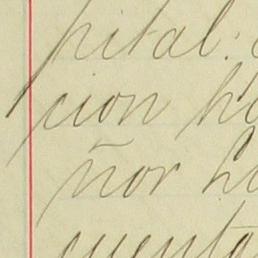 pital:
cion
ñor
cuenta